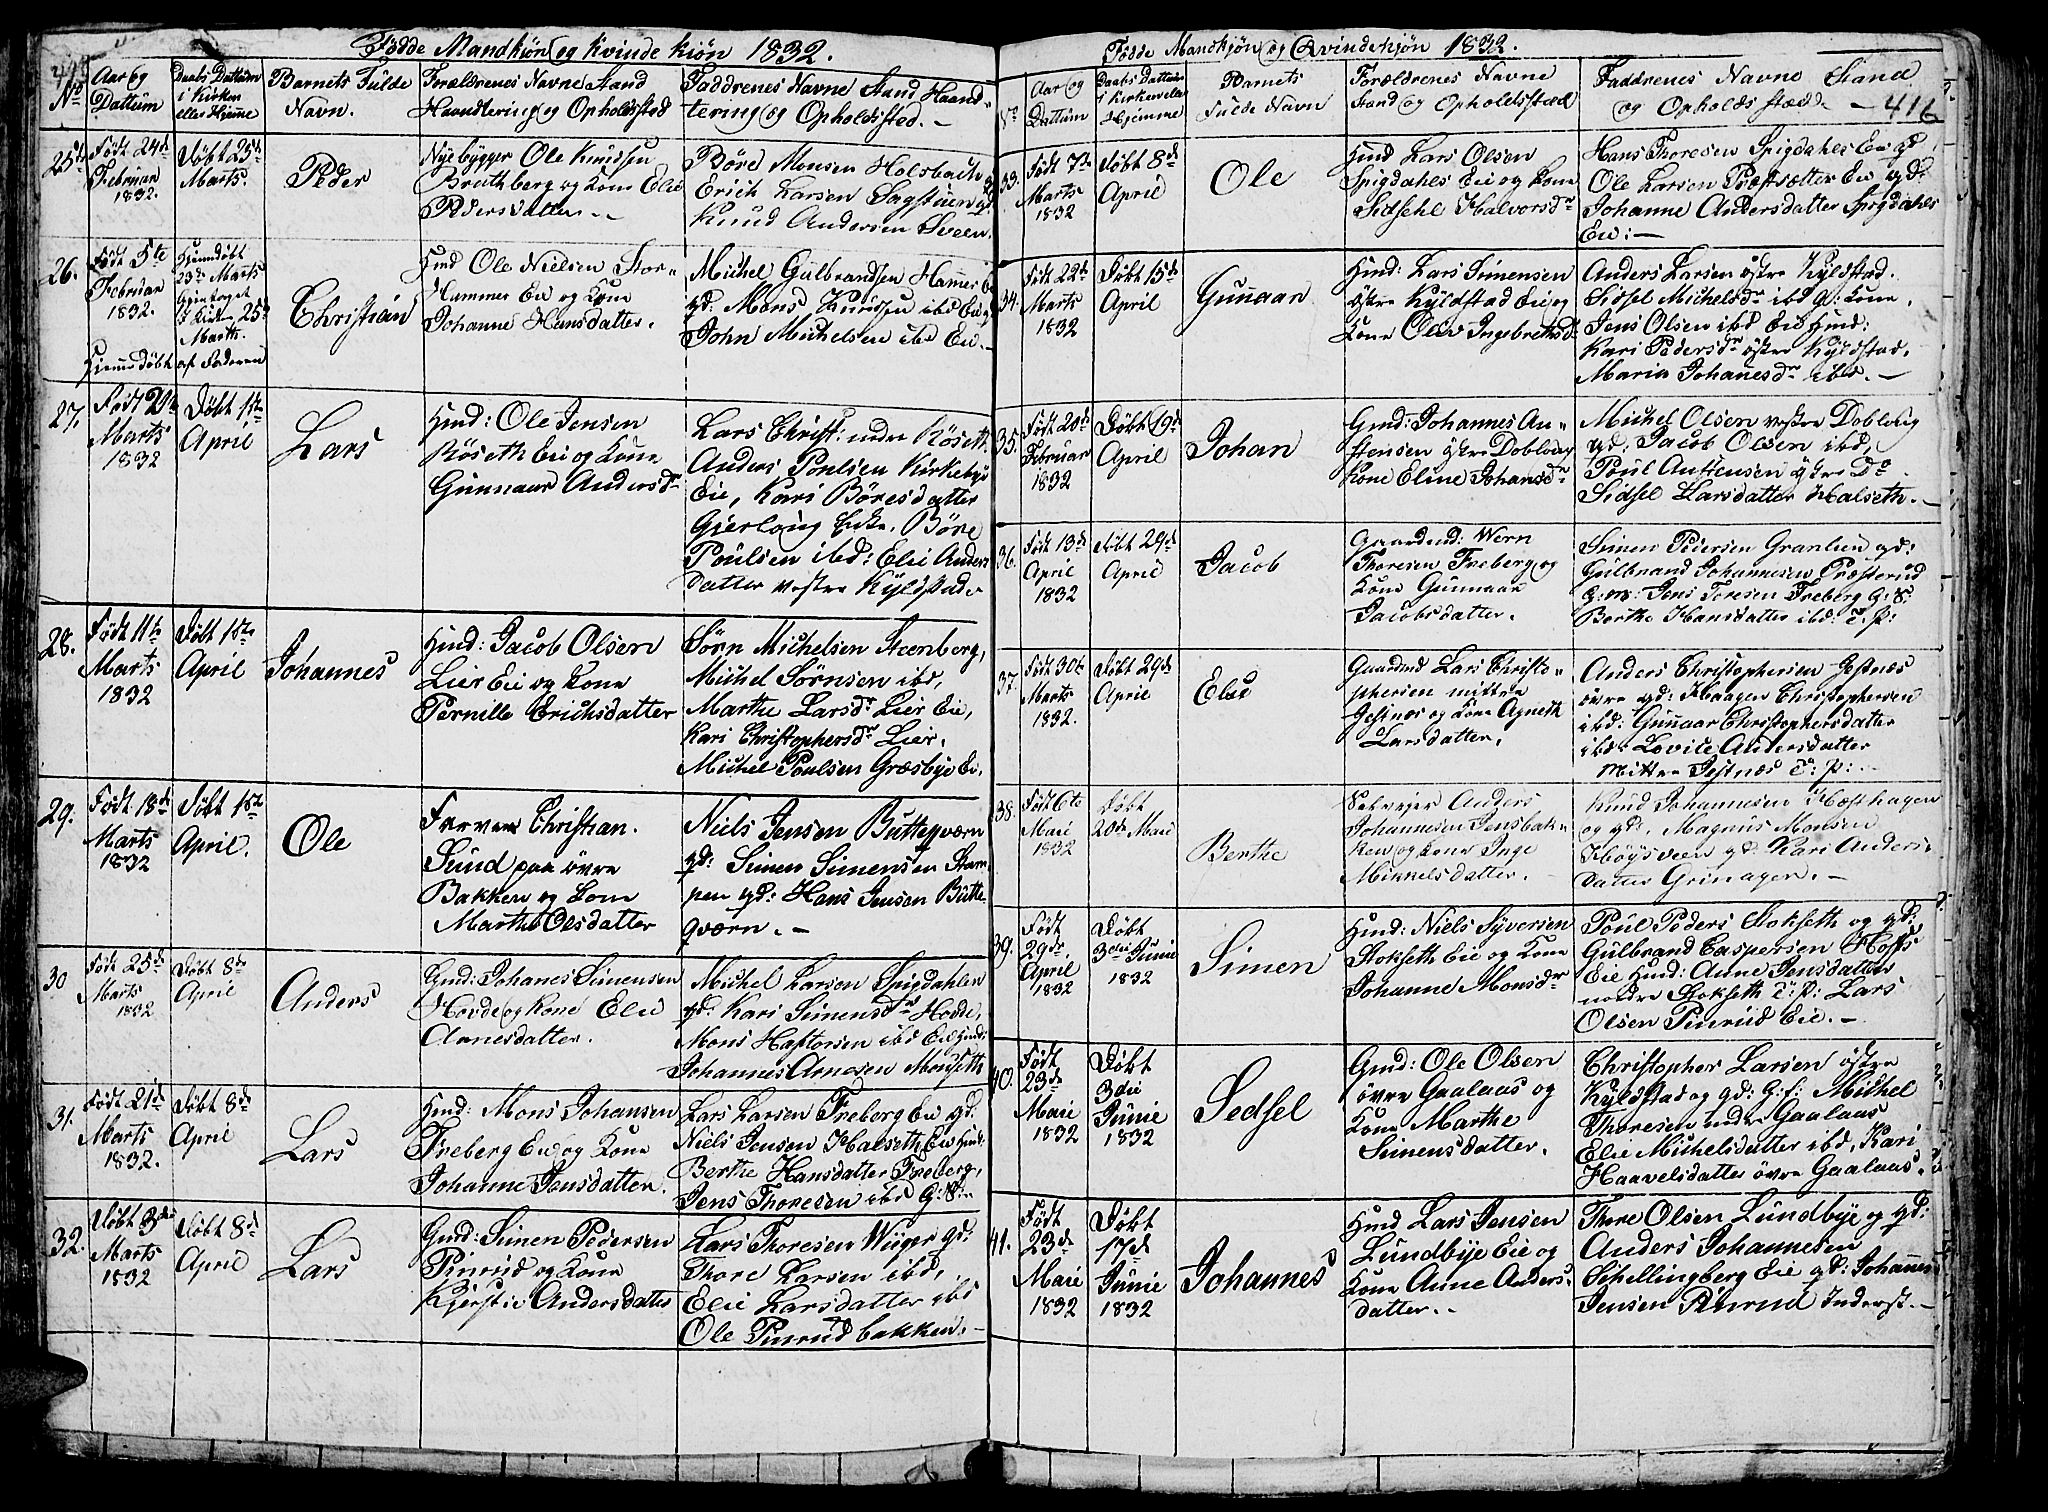 Fødde Mandkiön og Kvinde kiön 1832.
415
No
Aar og
Dattum
Daabs Dattum
i Kirken
eller Hjemme
Barnets Fulde
Navn.
Forældrenes Navne Stand
Haandtering og Opholdsted
Faddrenes Navne Stand Haand-
tering og Opholdsted.
25de
Født 24de
Februar
1832.
Döbt 25de
Marts.
Peder
Nyebygger Ole Knudsen
Brathberg og Kone Elie
Pedersdatter.
Böre Monsen Holsbach
Erich Larsen Sagstuen gd.
Knud Andersen Sveen.
26.
Født 5te
Februar
1832.
Hjemdøbt
23de Marts
Igientaget
i Kirken 25de
Marth.
Hjemdöbt af Faderen
Christian
Hmd Ole Nielsen Stor-
Hammer Eie og Kone
Johanne Hansdatter.
Michel Gulbrandsen Hamer
gd. Mons Knudsen ibd Eie
John Michelsen ibd Eie.
27.
Født
Marts
1832
Döbt 1ste
April
Lars
Hmd: Ole Jensen
Röseth Eie og Kone
Gunnaar Andersdr
Lars Christ: nedre Röseth
Anders Poulsen Kirkebye
Eie, Kari Böresdatter
Gjerloug Enke. Böre
Poulsen ibd: Elie Anders
datter vestre Kylstad.
28.
Født 11te
Marts
1832
Döbt 1ste
April
Johannes
Hmd: Jacob Olsen
Lier Eie og Kone
Pernille Erichsdatter
Sörn Michelsen Steenberg,
Michel Sörnsen ibd,
Marthe Larsdr Lier Eie,
Kari Christophersdr Lier.
Michel Poulsen Græsbye Ei.
29.
Født 18de
Marts
1832
Döbt 1ste
April.
Ole
Farver Christian
Lund paa övre
Bakken og Kone
Marthe Olsdatter
Niels Jensen Butteqværn
gd: Simen Simensen Stam-
pen gd: Hans Jensen Butte-
qværn.
30
Født 25de
Marts
1832
Döbt 8de
April
Anders
Gmd: Johanes Simensen
Hovde og Kone Elie
Arnesdatter.
Michel Larsen Spigdahlen
gd: Kari Simensdr Hovde,
Mons Haftorsen ibd Eie Hmd:
Johannes Arnesen Monseth
31.
Født 21de
Marts
1832.
Döbt 8de
April
Lars
Hmd: Mons Johansen
Freberg Eie og Kone
Johanne Jensdatter.
Lars Larsen Freberg Eie gd:
Niels Jensen Halseth Eie Hmd:
Berthe Hansdatter Freberg,
Jens Thoresen ibd G:S:
32.
Döbt 3die
Marts
1832
Döbt 8de
April
Lars
Gmd: Simen Pedersen
Pinrud og Kone
Kjersti Andersdatter
Lars Thoresen Wiiger gd:
Thore Larsen ibd,
Elie Larsdatter ibd
Ole Pinrudbakken.
Födde Mandkjön og Qvindekjön 1832.
416
No
Aar og
Dattum
Daabs Dattum
i Kirken eller
Hjemme
Barnets
Fulde Navn
Forældrenes Navne
Stand og Opholdsstæd
Faddrenes Navne Stand
og Opholds stæd.
33.
Født 7de
Marts
1832
Döbt 8de
April
Ole
Hmd Lars Olsen
Spigdahls Eie og Kone
Sidsehl Halvorsdr
Hans Thoresen Spigdahls Eie gd
Ole Larsen Præstsætter Eie gd:
Johanne Andersdatter Spigdahls
Eie:
34.
Født 22de
Marts
1832
Döbt 15de
April
Gunnaar
Hmd: Lars Simensen
östre Kyldstad Eie og
Kone Olev Ingebretsd:
Anders Larsen östre Kyldstad.
Sidsel Michelsdr ibd g: Kone.
Jens Olsen ibd Eie Hmd:
Kari Pedersdr östre Kyldstad,
Maria Johanesdr ibd.
35.
Født 20de
Februar
1832
Döbt 19de
April
Johan
Gmd: Johannes An-
stensen östre Doblong
Kone Eline Johansdr
Michel Olsen vestre Doblong
gd: Jacob Olsen ibd,
Poul Anstensen östre Do
Sidsel Larsdatter Halseth.
36.
Født 13de
April
1832
Döbt 29de
April
Jacob
Gaardmd: Wern
Thoresen Freberg og
Kone Gunnaar
Jacobsdatter.
Simen Pedersen Granlien gd:
Gulbrand Johannesen Præsterud
G:m: Jens Toresen Freberg G:S:
Berthe Hansdatter ibd: T:P:
37.
Født 30te
Marts
1832.
Döbt 29de
April
Elie
Gaardmd Lars Christo-
phersen mittre
Jesnes og Kone Agneth
Larsdatter.
Anders Christophersen Jesnæs
övre gd: Haagen Christophersen
ibd: Gunnaar Christophersdatter
ibd. Lovise Andersdatter
Mittre Jesnæs T:P:
38.
Født 6te
Maii
1832
Döbt
20de Maii
Berthe
Selveier Anders
Johannesen Jensbak-
ken og Kone Inge
Mikkelsdatter.
Knud Johannesen Hæsthagen
og gd, Magnus Monsen
Höysveen gd. Kari Anders-
datter Grinagen.
39.
Født
29de
April
1832
Döbt
3die Junie
1832
Simen
Hmd: Niels Syversen
Stokseth Eie og Kone
Johanne Monsdr
Poul Peders Stokseth og gd:
Gulbrand Caspersen Hoffs
Eie Hmd: Anne Jensdatter
nordre Stokseth T:P: Lars
Olsen Pinrud Eie.
40.
Født
23de
Maii
1832
Döbt
3die
Junie
1832
Sedsel
Gmd: Ole Olsen
övre Gaalaas og
Kone Marthe
Simensdatter.
Christopher Larsen östre
Kyldstad og gd: G:f: Michel
Thoresen nedre Gaalaas
Elie Michelsdatter ibd, Kari
Haavelsdatter övre Gaalaas.
41.
Født
23de
Maii
1832
Döbt
17de
Junie
1832
Johannes
Hmd Lars Jensen
Lundbye Eie og
Kone Anne Anders-
datter.
Thore Olsen Lundbye og gd:
Anders Johannesen
Schellingberg Eie gd: Johannes
Jensen Pinrud Inderst.